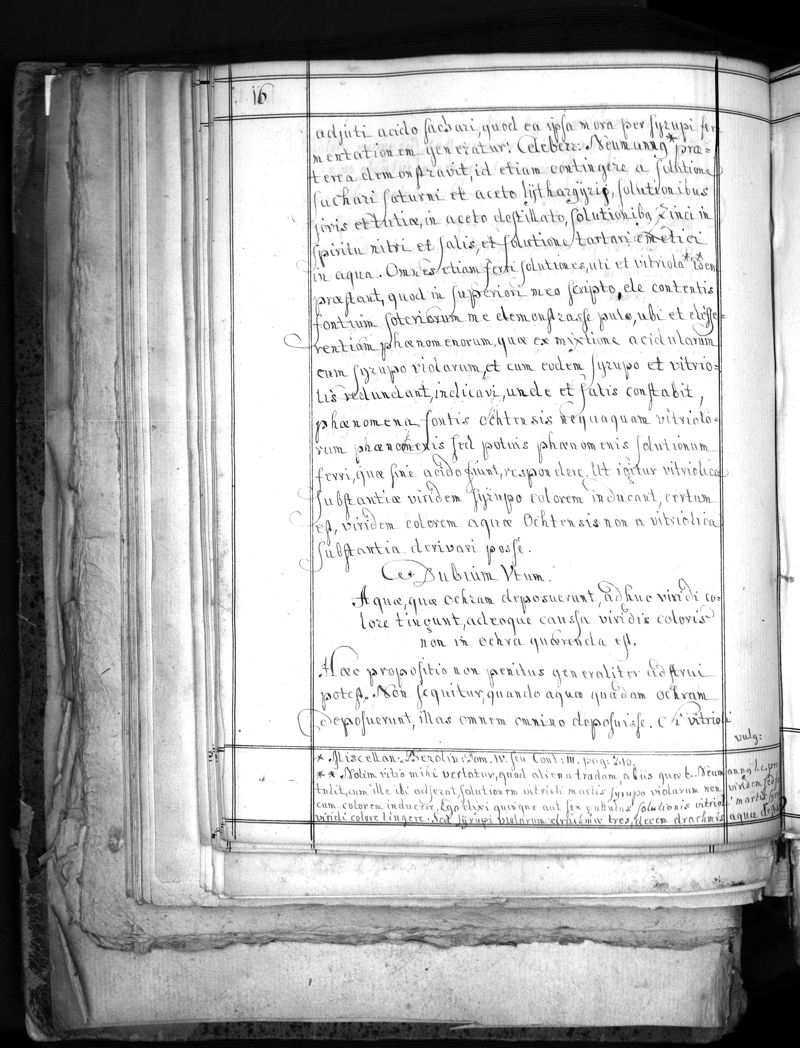 16
adjuti acido sachari, quod ea ipsa mora per syrupi fer
mentationem generatur. Celeberr: Neumannq* præ=
terea demonstravit, id etiam contingere a solutione
sachari saturni et aceto lythargÿrii, solutionibus
jovis et tutiæ, in aceto destillato, solutionibq Zinci in
spiritu nitri et salis, et solutione tartari emetici
in aqua. Omnes etiam ferri solutiones, uti et vitriola** idem
præstant, quod in superiori meo scripto, de contentis
fontium soteriorum me demonstrasse puto, ubi et diffe=
rentiam phænomenorum, quæ ex mixtione acidularum
cum syrupo violarum, et cum eodem syrupo et vitrio=
lis redundant, indicavi, unde et satis constabit,
phænomena fontis Ochtensis nequaquam vitriolo=
rum phænomenis sed potius phænomenis solutionum
ferri, quæ sine acido fiunt, respondere. Ut igitur vitriolicæ
substantiæ viridem syrupo colorem inducant, certum
est, viridem colorem aquæ Ochtensis non a vitriolica
substantia derivari posse.
Dubium Vtum.
Aquæ, quæ ochram deposuerunt, adhuc viridi co=
lore tingunt, adeoque caussa viridis coloris
non in ochra quærenda est.
Hæc propositio non penitus generaliter adstrui
potest. Non sequitur, quando aquæ quædam ochram
deposuerunt, illas omnem omnino deposuisse. Et vitrioli
vulg:
* Miscellan: Berolin: Tom. IV. seu Cont: III. pag: 310.
** Nolim vitio mihi vertatur, quod aliena tradam, ab iis quæ b. Neumannq l.c. pro
tulit, cum ille ibi adserat, solutionem vitrioli martis syrupo violarum non viridem sed
cum colorem inducere. Ego quinque aut sex guttulas solutionis vitrioli martis
viridi colore tingere. Sed syrupi violarum drachmæ tres, decem drachmis aquæ